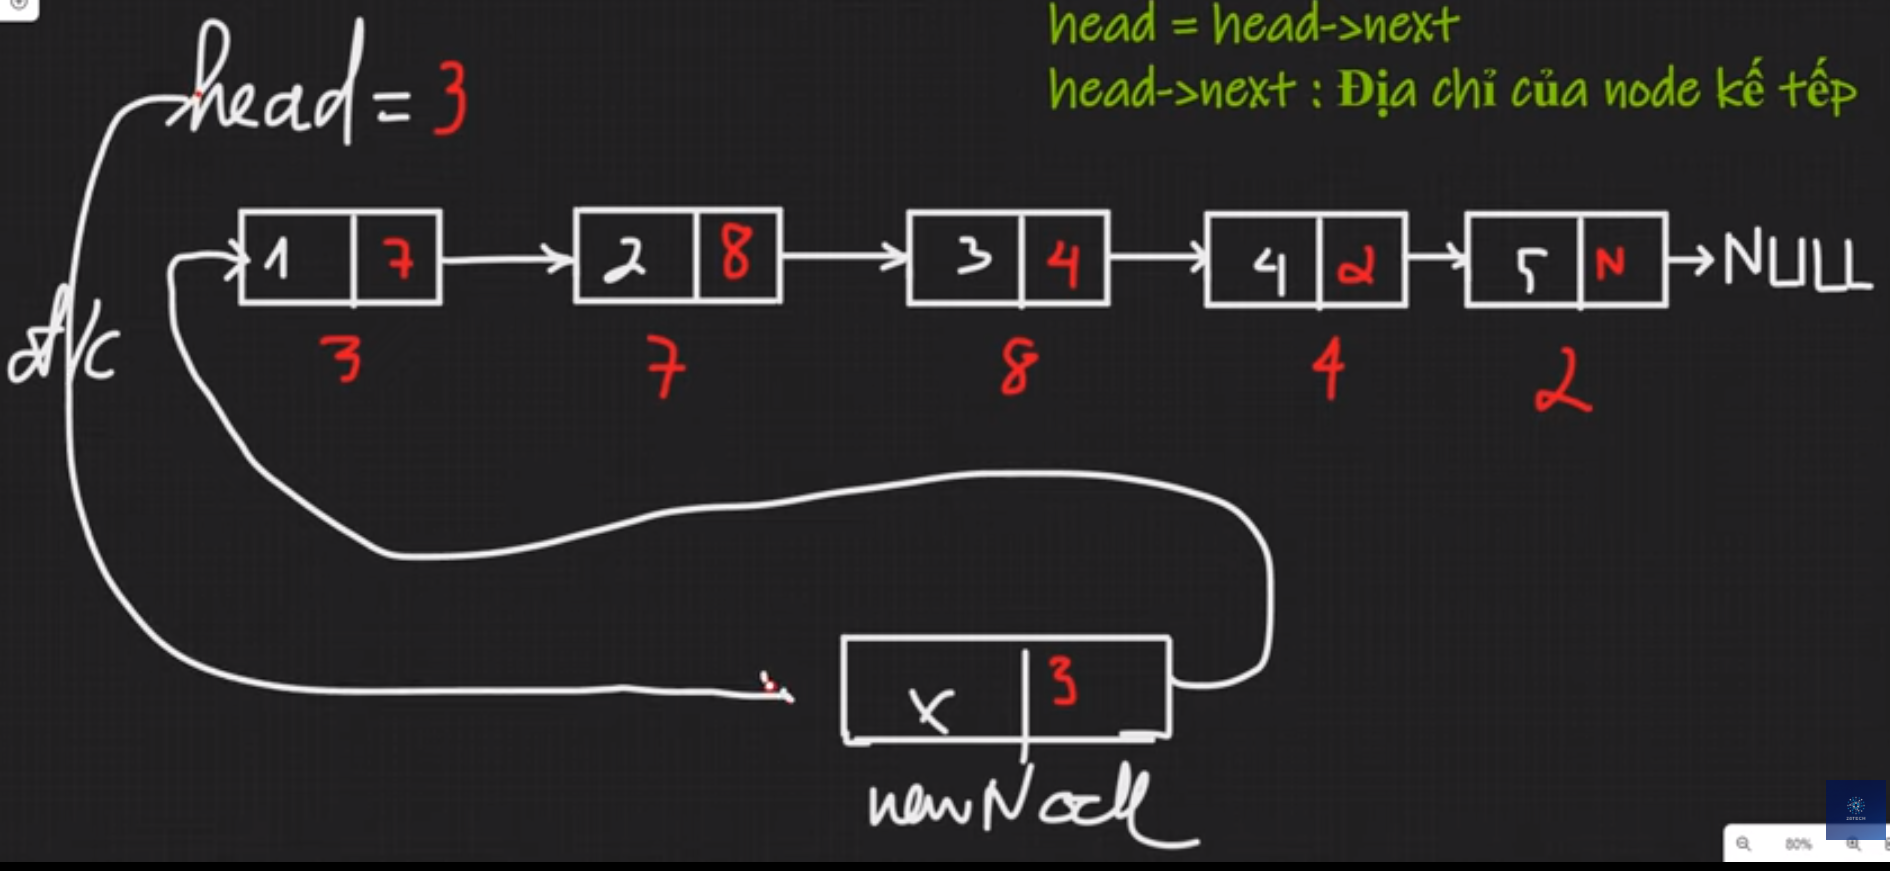 head = head->next
head->next : Địa chỉ của node kế tếp
head = 3
1 7 2 8 3 4 4 2 5 N NULL
đ/c
3 7 8 4 2
x 3
newNode
28TECH
80%